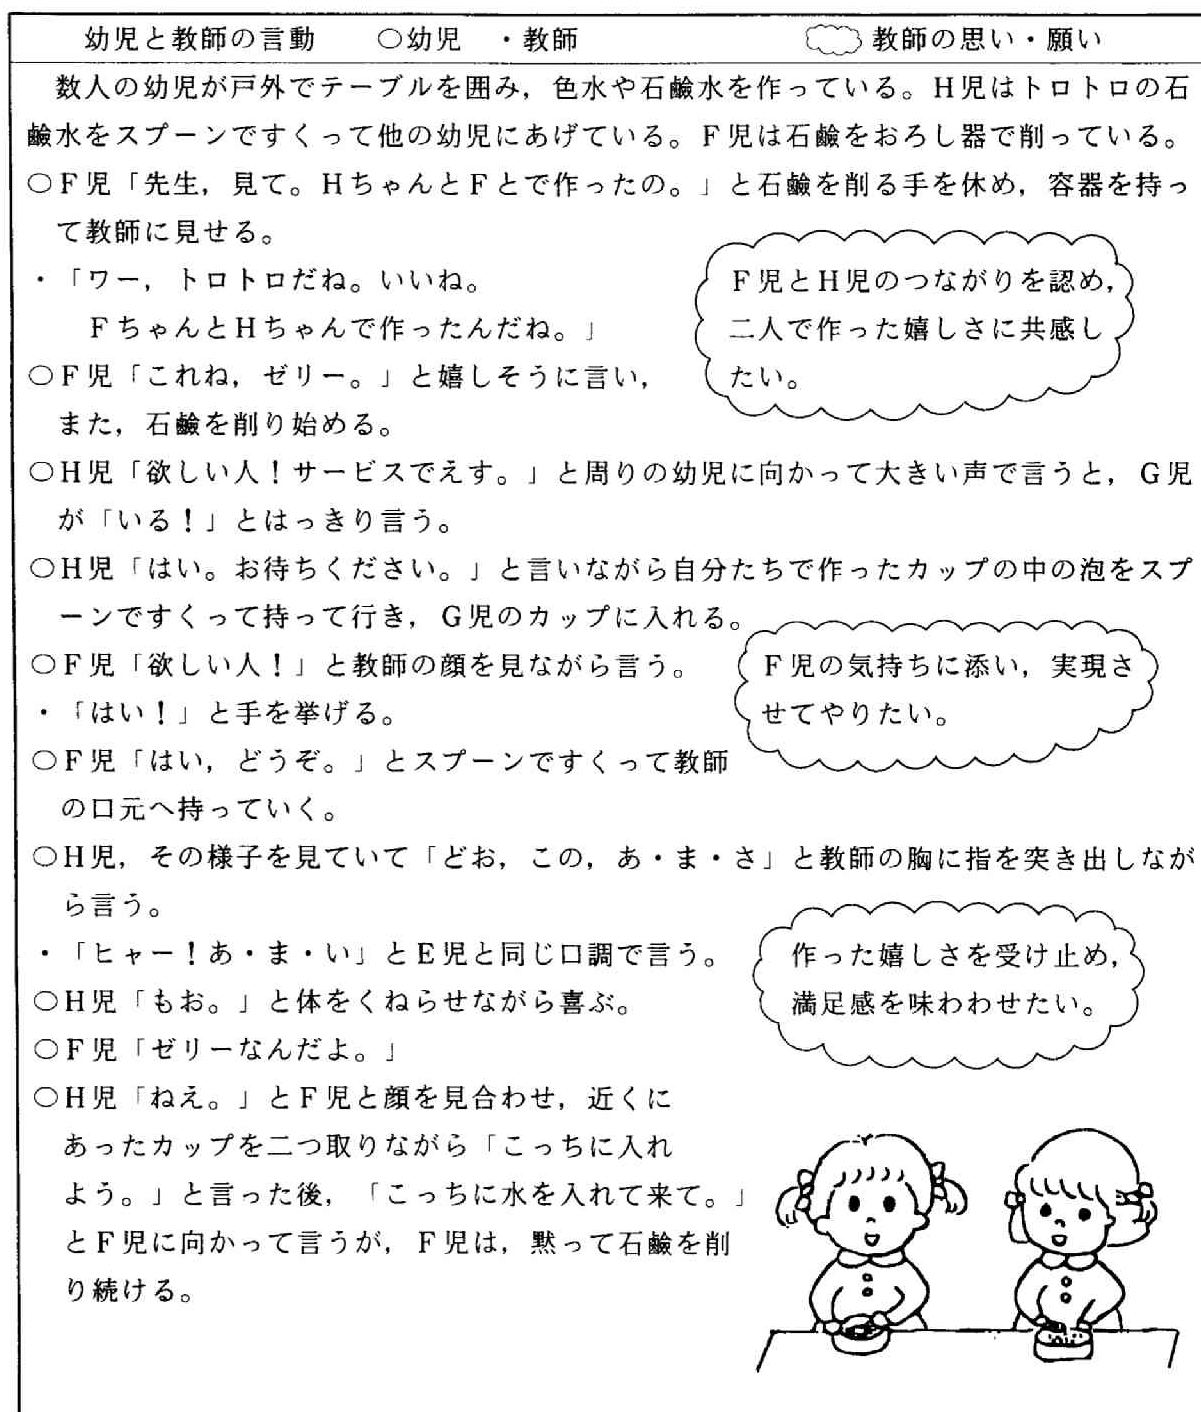 幼児と教師の言動　　○幼児　・教師　　教師の思い・願い
数人の幼児が戸外でテーブルを囲み，色水や石鹼水を作っている。H児はトロトロの石
鹼水をスプーンですくって他の幼児にあげている。F児は石鹼をおろし器で削っている。
○F児「先生，見て。HちゃんとFとで作ったの。」と石鹼を削る手を休め，容器を持っ
て教師に見せる。
・「ワー，トロトロだね。いいね。
FちゃんとHちゃんで作ったんだね。」
F児とH児のつながりを認め，
二人で作った嬉しさに共感し
たい。
○F児「これね，ゼリー。」と嬉しそうに言い，
また，石鹼を削り始める。
○H児「欲しい人！サービスでえす。」と周りの幼児に向かって大きい声で言うと，G児
が「いる！」とはっきり言う。
○H児「はい。お待ちください。」と言いながら自分たちで作ったカップの中の泡をスプ
ーンですくって持って行き，G児のカップに入れる。
○F児「欲しい人！」と教師の顔を見ながら言う。
・「はい！」と手を挙げる。
F児の気持ちに添い，実現さ
せてやりたい。
○F児「はい，どうぞ。」とスプーンですくって教師
の口元へ持っていく。
○H児，その様子を見ていて「どお，この，あ・ま・さ」と教師の胸に指を突き出しなが
ら言う。
・「ヒャー！あ・ま・い」とE児と同じ口調で言う。
作った嬉しさを受け止め，
満足感を味わわせたい。
○H児「もお。」と体をくねらせながら喜ぶ。
○F児「ゼリーなんだよ。」
○H児「ねえ。」とF児と顔を見合わせ，近くに
あったカップを二つ取りながら「こっちに入れ
よう。」と言った後，「こっちに水を入れて来て。」
とF児に向かって言うが，F児は，黙って石鹼を削
り続ける。